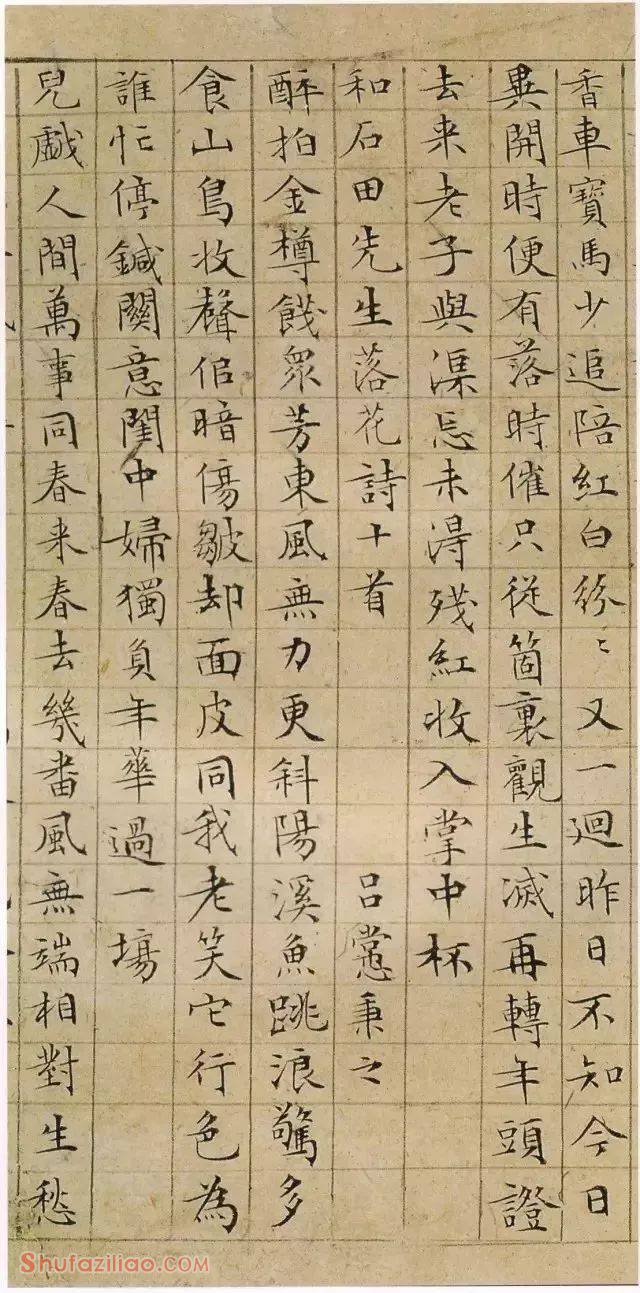 香車寶馬少追陪紅白紛〻又一迴昨日不知今日
異開時便有落時催只從箇裏觀生滅再轉年頭證
去来老子與渠忘未得殘紅收入掌中杯
和石田先生落花詩十首 呂㦂秉之
醉拍金樽餞眾芳東風無力更斜陽溪魚跳浪驚多
食山鳥收聲倍暗傷皺却面皮同我老笑它行色為
誰忙停鍼闕意閨中婦獨負年華過一場
兒戲人間萬事同春来春去幾番風無端相對生愁
Shufaziliao.com